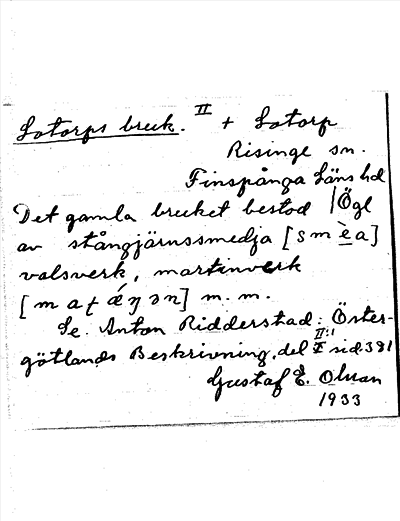 Lotorps bruk. II + Lotorp
Risinge sn.
Finspånga Läns hd
Det gamla bruket bestod /Ögl
av stångjärnssmedja [smèa]
valsverk, martinverk
[maƭǽŋən] m. m.
Se. Anton Ridderstad: Öster-
götlands Beskrivning, del II:1 sid. 381
Gustaf E. Olsson
1933